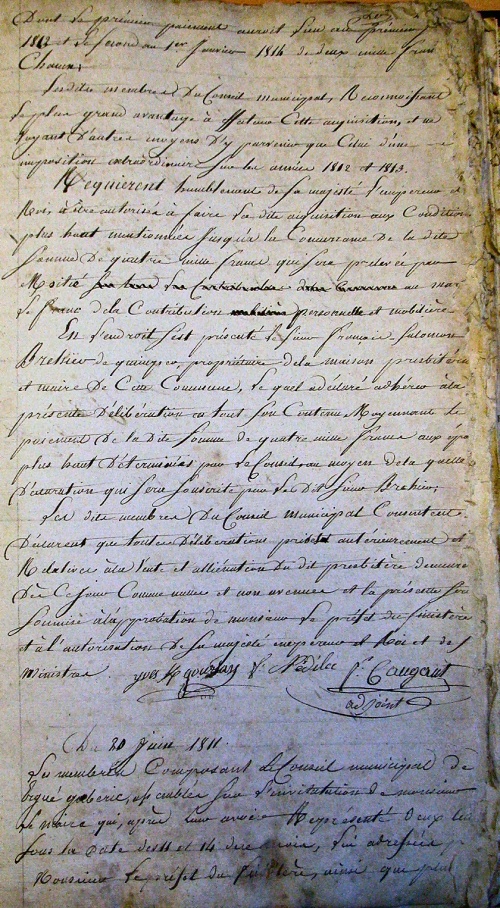 Dont le prémier paiement auroit lieu au prémier
1812 et le second au 1er janvier 1814 de deux mille francs
Chacun;
Lesdits membres Du Conseil municipal, Reconnoissant
le plus grand avantage à effectuer Cette acquisition, et ne
voyant D'autres moyens D'y parvenir que Celui d'une
imposition extraordinaire sur les années 1812 et 1813.
Requièrent humblement de sa majesté l'empereur et
Roi, d'être autorisés à faire la dite acquisition aux Conditions
plus haut mentionnées jusqu'à la Concurrance De la dite
somme De quatre mille francs qui sera prélevée par
Moitié au mar
le franc de la Contribution personnelle et mobilière
En l'endroit s'est présenté le sieur françois salomon
Bréhier de quimper, propriétaire de la maison presbitérale
et maire De Cette Commune, le quel a déclaré adhérer à la
présente Délibération en tout son Contenu Moyennant le
paiement De la Dite somme de quatre mille francs aux épo
plus haut Déterminées par le Conseil, au moyen de la quelle
Déclaration qui sera souscrite par le Dit sieur Bréhier,
les dits membres Du Conseil municipal Consentent
Désirent que toutes Délibérations prises antérieurement et
Relatives à la vente et aliénation Du dit presbitère demeure
Dès Ce jour Comme nulles et non avenues et la présente sera
soumise à l'approbation de monsieur le préfet du finistère
et à l'autorisation De sa majesté empereur et Roi et de s
ministres. yves Kgourlay Nédélec Caugant
adjoint
Du 20 Juin 1811.
Les membres Composant le Conseil municipal De
Ergué gaberic, assemblés sur l'invitation de monsieur
le maire qui, après leur avoir Représenté Deux
sous la date des 11 et 14 de ce mois, lui adressées
Monsieur le préfet du finistère, ainsi que